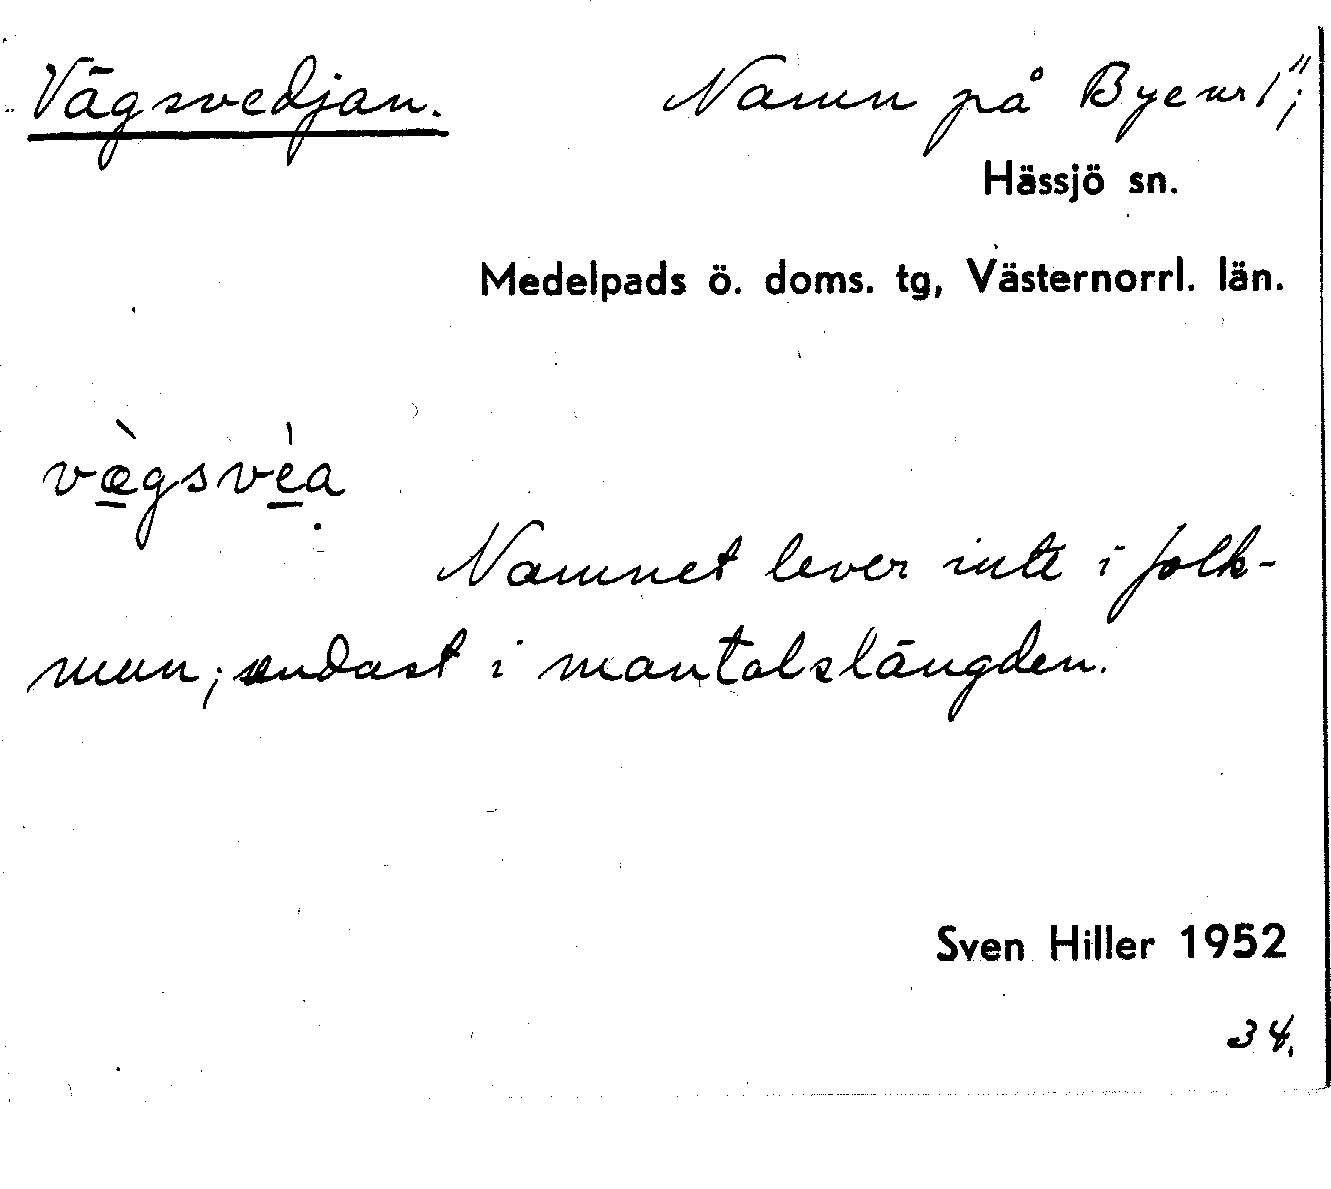 Vägsvedjan. Namn på Byenr 1";
Hässjö sn.
Medelpads ö. doms. tg, Västernorrl. län.
væ̀gsvèa
Namnet lever inte i folk-
mun; endast i mantalslängden.
Sven Hiller 1952
34.